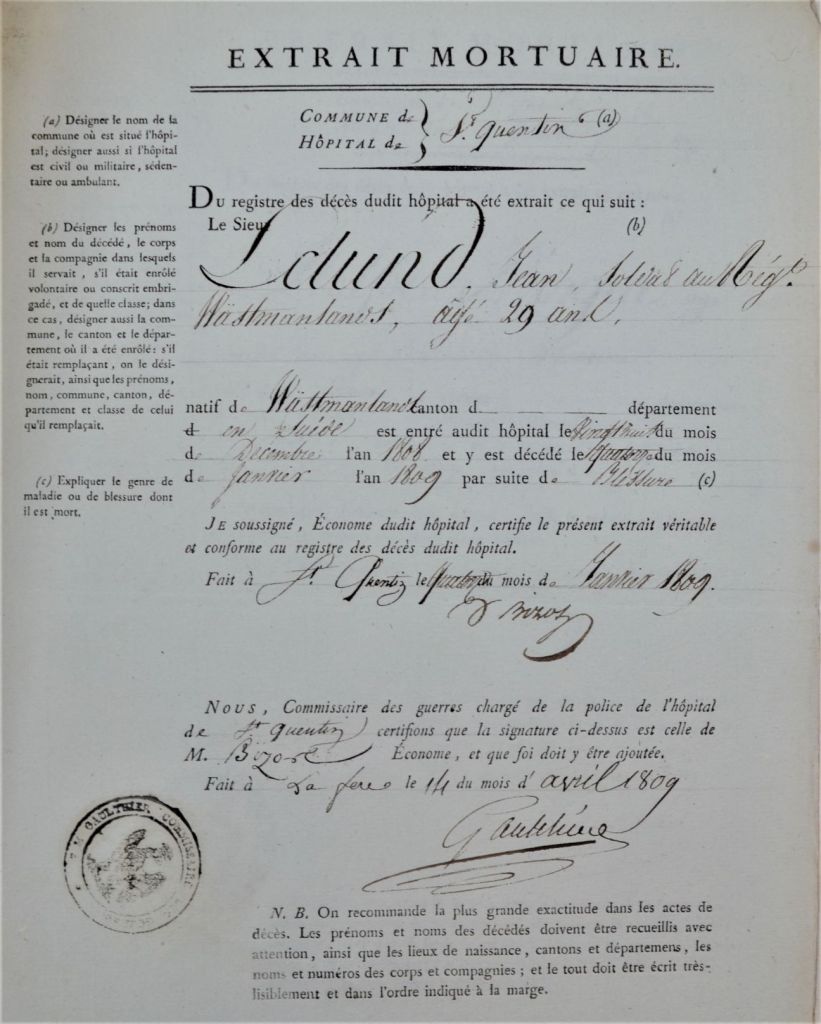 EXTRAIT MORTUAIRE.
COMMUNE de
HÔPITAL de
St. quentin (a)
(a) Désigner le nom de la
commune où est situé l'hôpi-
tal; désigner aussi si l'hôpital
est civil ou militaire, séden-
taire ou ambulant.
(b) Désigner les prénoms
et nom du décédé, le corps
et la compagnie dans lesquels
il servait, s'il était enrôlé
volontaire ou conscrit embri-
gadé, et de quelle classe; dans
ce cas, désigner aussi la com-
mune, le canton et le dépar-
tement où il a été enrôlé: s'il
était remplaçant, on le dési-
gnerait, ainsi que les prénoms,
nom, commune, canton, dé-
partement et classe de celui
qu'il remplaçait.
(c) Expliquer le genre de
maladie ou de blessure dont
il est mort.
DU registre des décès dudit hôpital a été extrait ce qui suit :
Le Sieur (b)
Jean, Soldat au Régt.
Wästmanlandst, âgé 29 ans.
natif de Wästmanlandst canton d département
d en Suède est entré audit hôpital le Vingthuit du mois
de Décembre l'an 1808 et y est décédé le quatorze du mois
de Janvier l'an 1809 par suite de Blessure (c)
JE soussigné, Économe dudit hôpital, certifie le présent extrait véritable
et conforme au registre des décès dudit hôpital.
Fait à St. Quentin le quatorze du mois de Janvier 1809.
NOUS, Commissaire des guerres chargé de la police de l'hôpital
de St quentin certifions que la signature ci-dessus est celle de
M. Économe, et que foi doit y être ajoutée.
Fait à La fere le 14 du mois d' avril 1809
M. GAULTHIER COMMISSAIRE
N. B. On recommande la plus grande exactitude dans les actes de
décès. Les prénoms et noms des décédés doivent être recueillis avec
attention, ainsi que les lieux de naissance, cantons et départemens, les
noms et numéros des corps et compagnies ; et le tout doit être écrit très-
lisiblement et dans l'ordre indiqué à la marge.